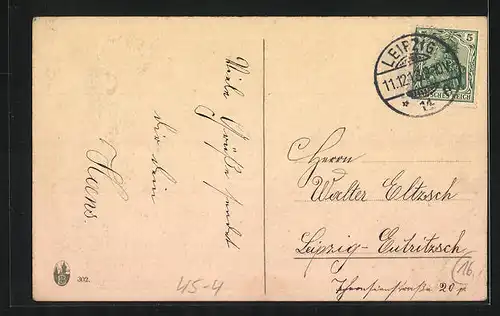 Viele Grüße sendet
dir dein
Hans.
LEIPZIG
11.12.1
5
DEUTSCHES REICH
Herrn
Walter Eltzsch
Leipzig-Eutritzsch
20
(16.
302.
45-4